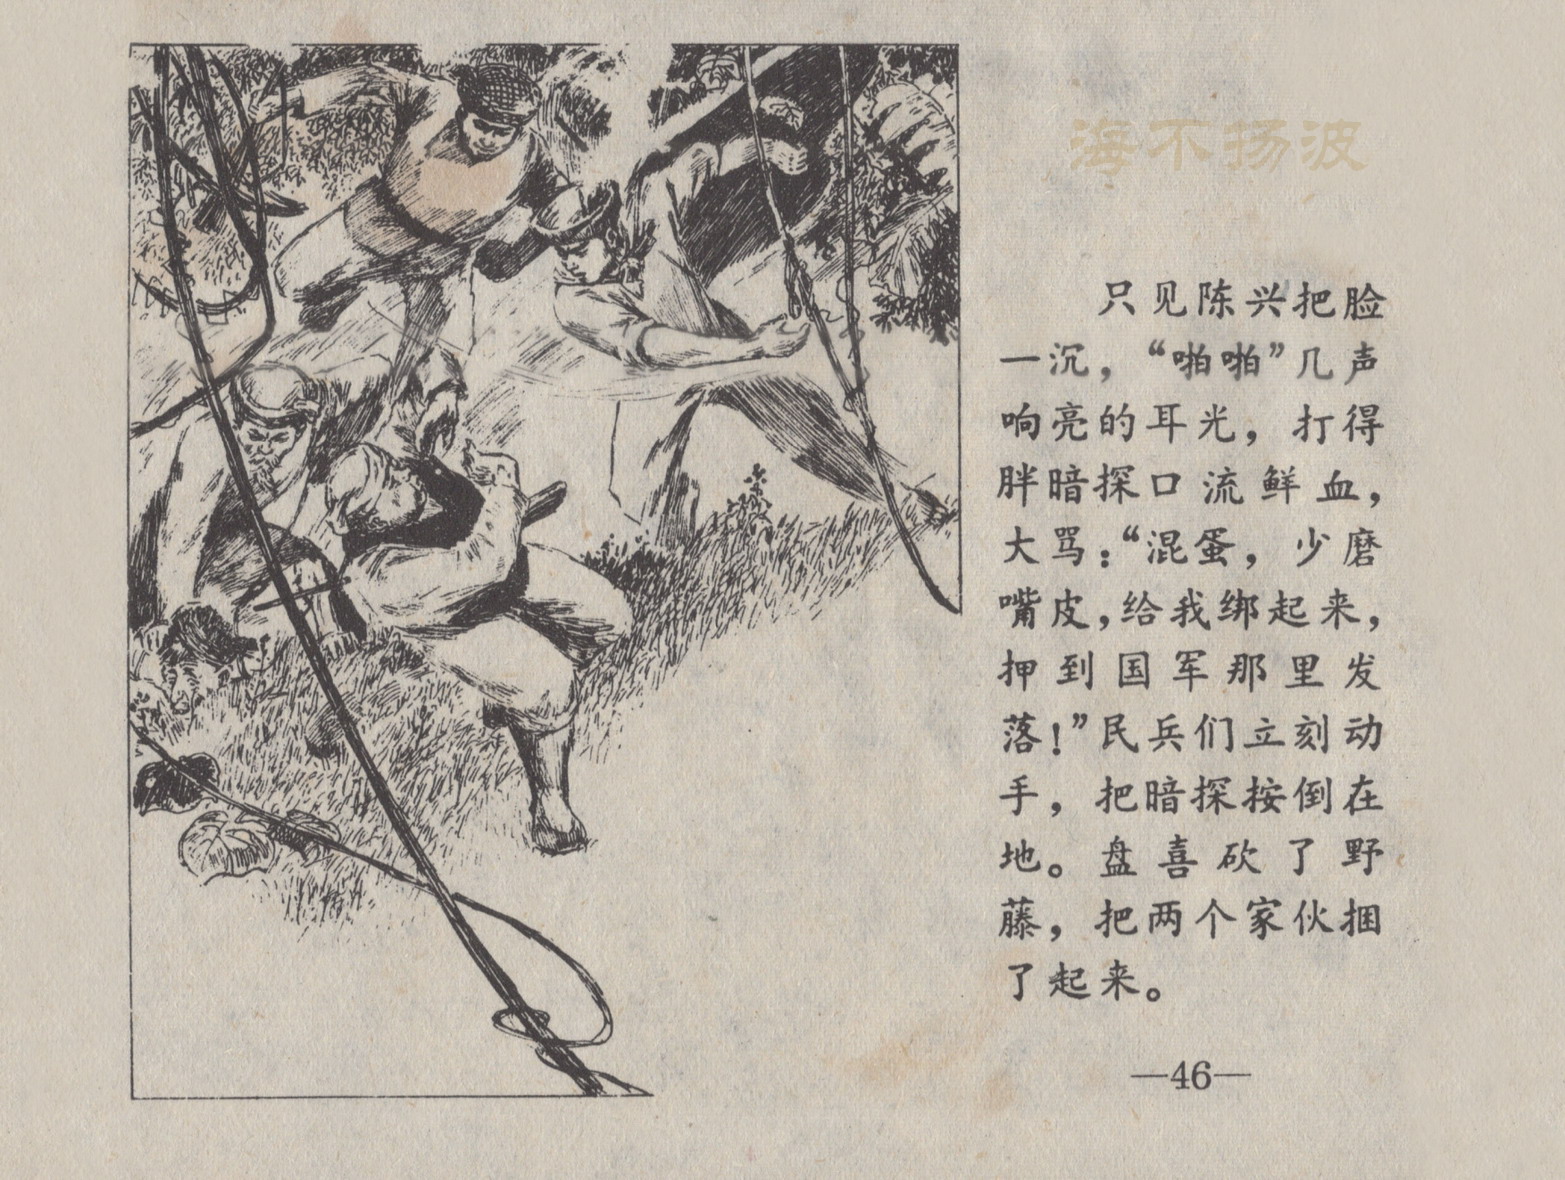 海不扬波
只见陈兴把脸
一沉，“啪啪”几声
响亮的耳光，打得
胖暗探口流鲜血，
大骂：“混蛋，少磨
嘴皮，给我绑起来，
押到国军那里发
落！”民兵们立刻动
手，把暗探按倒在
地。盘喜砍了野
藤，把两个家伙捆
了起来。
—46—